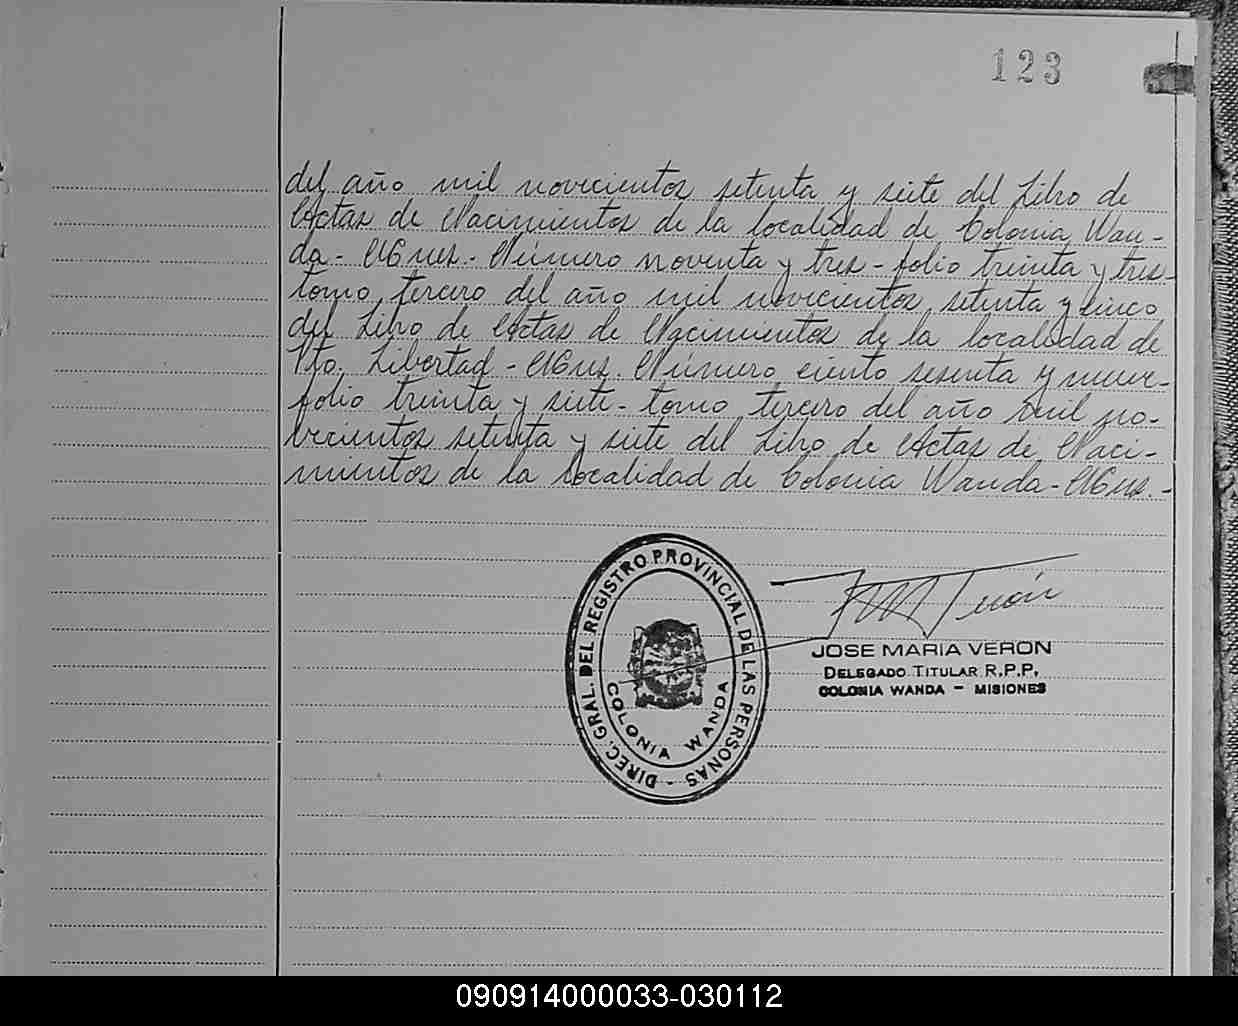 123
del año mil novecientos setenta y siete del Libro de
Actas de Nacimientos de la localidad de Colonia Wan-
da - Mnes. - Número noventa y tres - folio treinta y tres -
tomo tercero del año mil novecientos setenta y cinco
del Libro de Actas de Nacimientos de la localidad de
Pto. Libertad - Mnes. Número ciento sesenta y nueve -
folio treinta y siete - tomo tercero del año mil no-
vecientos setenta y siete del Libro de Actas de Naci-
mientos de la localidad de Colonia Wanda - Mnes. -
DIREC. GRAL. DEL REGISTRO PROVINCIAL DE LAS PERSONAS -
COLONIA WANDA
JOSE MARIA VERON
DELEGADO TITULAR R.P.P.
COLONIA WANDA - MISIONES
090914000033-030112